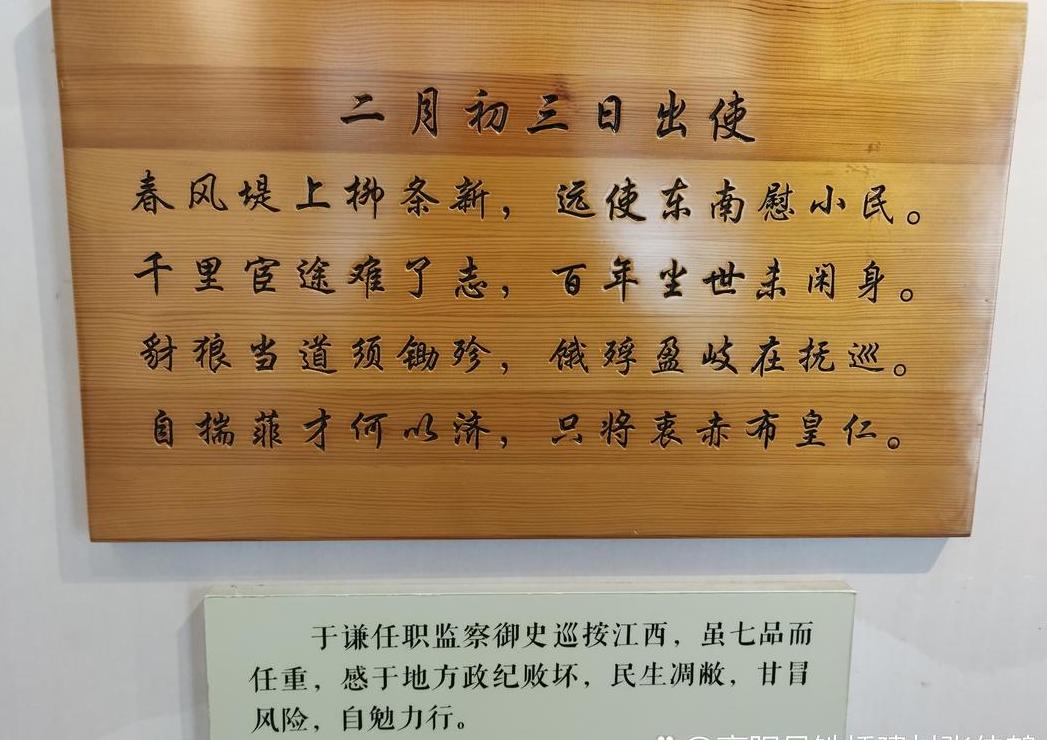 二月初三日出使
春风堤上柳条新，远使东南慰小民。
千里宦途难了志，百年尘世未闲身。
豺狼当道须锄殄，饿殍盈岐在抚巡。
自揣菲才何以济，只将衷赤布皇仁。
于谦任职监察御史巡按江西，虽七品而
任重，感于地方政纪败坏，民生凋敝，甘冒
风险，自勉力行。